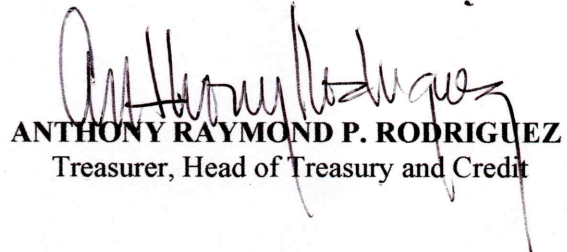 Anthony Rodriguez
ANTHONY RAYMOND P. RODRIGUEZ
Treasurer, Head of Treasury and Credit